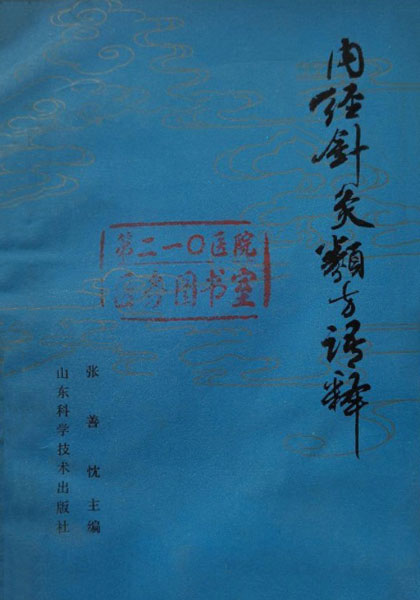 内经針灸類方语释
第二一〇医院
医务图书室
张善忱主编
山东科学技术出版社